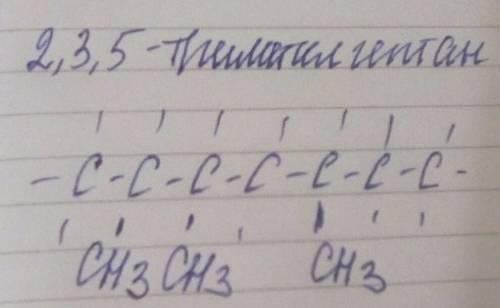 2,3,5-триметилгептан
- C - C - C - C - C - C - C -
CH3 CH3 CH3